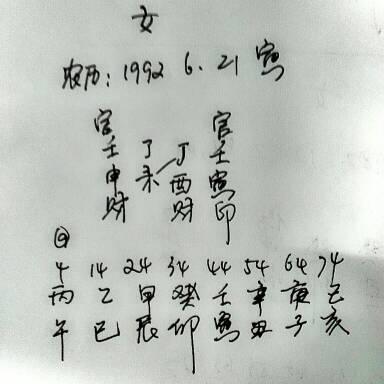 女
农历: 1992 6. 21 寅
官 官
壬 丁 丁 壬
申 未 酉 寅
财 财 印
4 14 24 34 44 54 64 74
丙 乙 甲 癸 壬 辛 庚 己
午 巳 辰 卯 寅 丑 子 亥